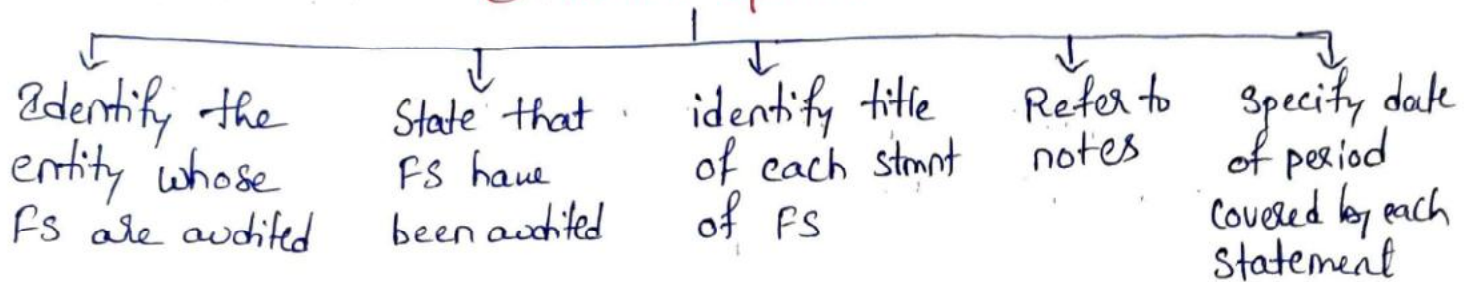 Identify the
entity whose
FS are audited
State that
FS have
been audited
identify title
of each stmnt
of FS
Refer to
notes
specify date
of period
covered by each
statement